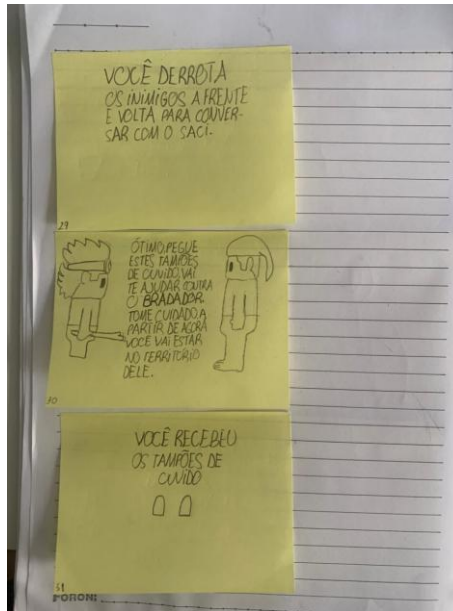 VOCÊ DERROTA
OS INIMIGOS A FRENTE
E VOLTA PARA CONVER-
SAR COM O SACI.
29
ÓTIMO, PEGUE
ESTES TAMPÕES
DE OUVIDO, VAI
TE AJUDAR CONTRA
O BRADADOR.
TOME CUIDADO, A
PARTIR DE AGORA
VOCÊ VAI ESTAR
NO TERRITÓRIO
DELE.
30
VOCÊ RECEBEU
OS TAMPÕES DE
OUVIDO
31
FORONI